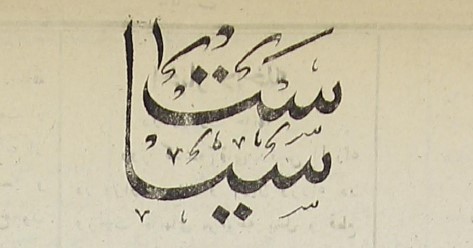 سياست